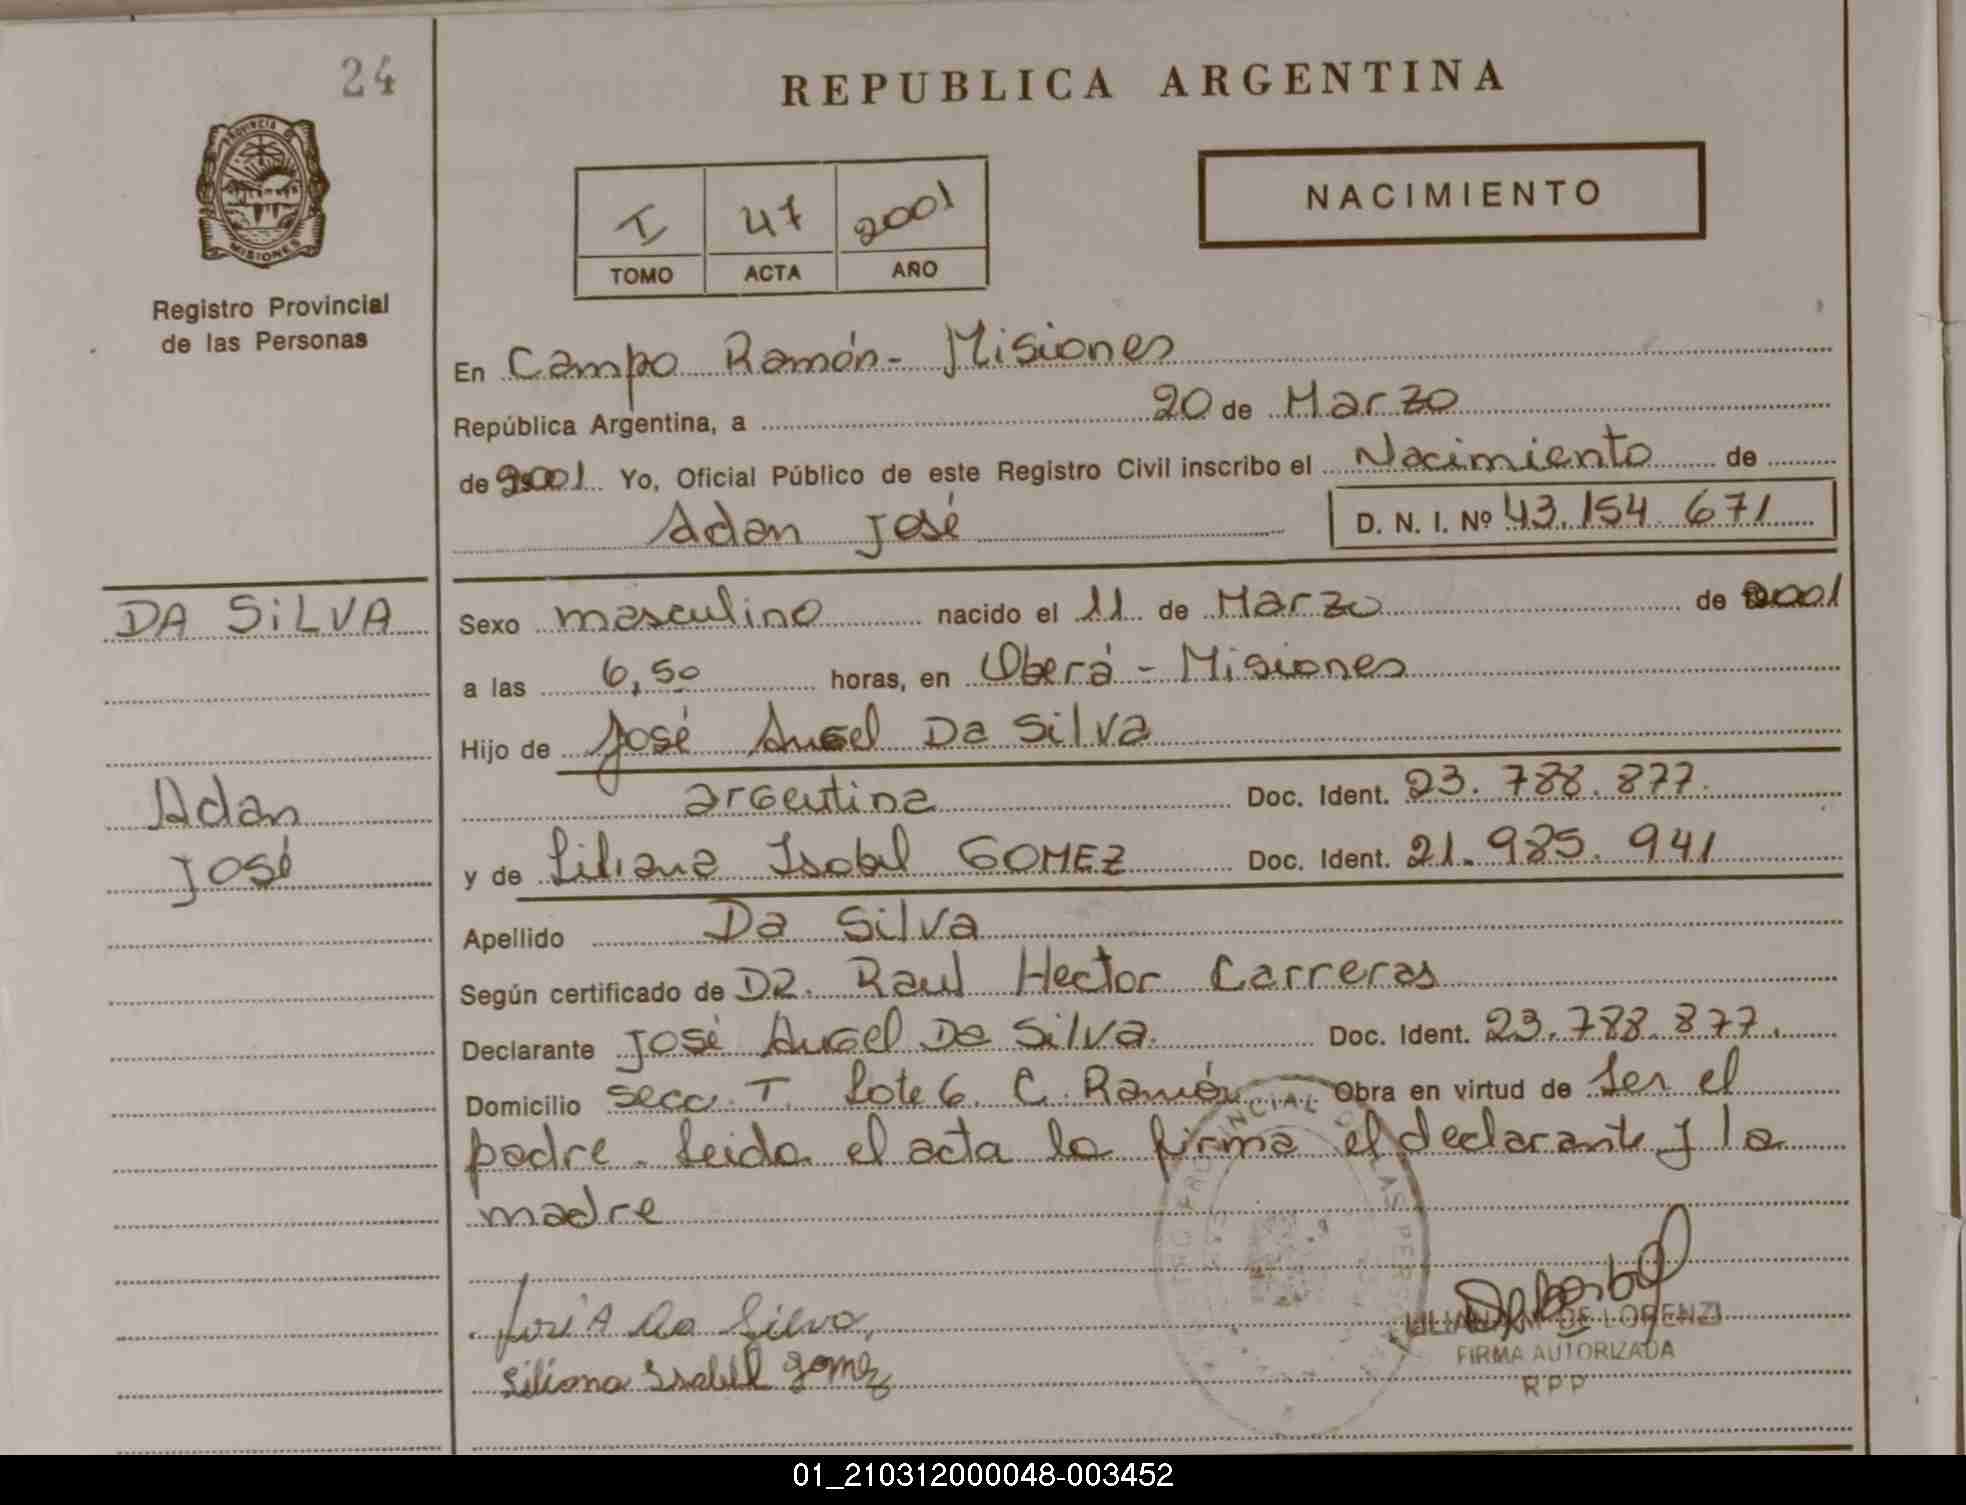 24
REPUBLICA ARGENTINA
PROVINCIA DE
MISIONES
Registro Provincial
de las Personas
I 47 2001
TOMO ACTA AÑO
NACIMIENTO
En Campo Ramón - Misiones
República Argentina, a 20 de Marzo
de 2001 Yo, Oficial Público de este Registro Civil inscribo el Nacimiento de
Adan José D. N. I. Nº 43.154.671
DA SiLVA
Sexo masculino nacido el 11 de Marzo de 2001
a las 6,50 horas, en Oberá - Misiones
Hijo de José Angel Da Silva
Adan
argentina Doc. Ident. 23.788.877.
José
y de Liliana Isabel GOMEZ Doc. Ident. 21.985.941
Apellido Da Silva
Según certificado de DR. Raul Hector Carreras
Declarante José Angel Da Silva. Doc. Ident. 23.788.877.
Domicilio secc. T. Lote 6. C. Ramón Obra en virtud de Ser el
padre. Leida el acta la firma el declarante y la
madre
PROVINCIAL DE LAS PERSONAS
José A Da Silva,
Liliana Isabel gomez
DE LORENZI
FIRMA AUTORIZADA
R.P.P
01_210312000048-003452